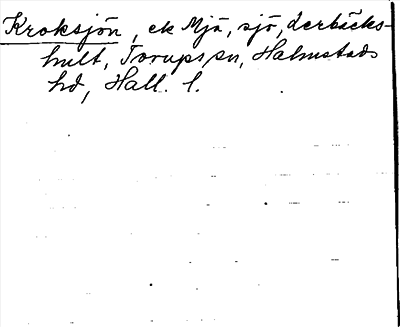 Kroksjön, ek Mjä, sjö, Lerbäcks-
hult, Torups sn, Halmstads
hd, Hall. l.